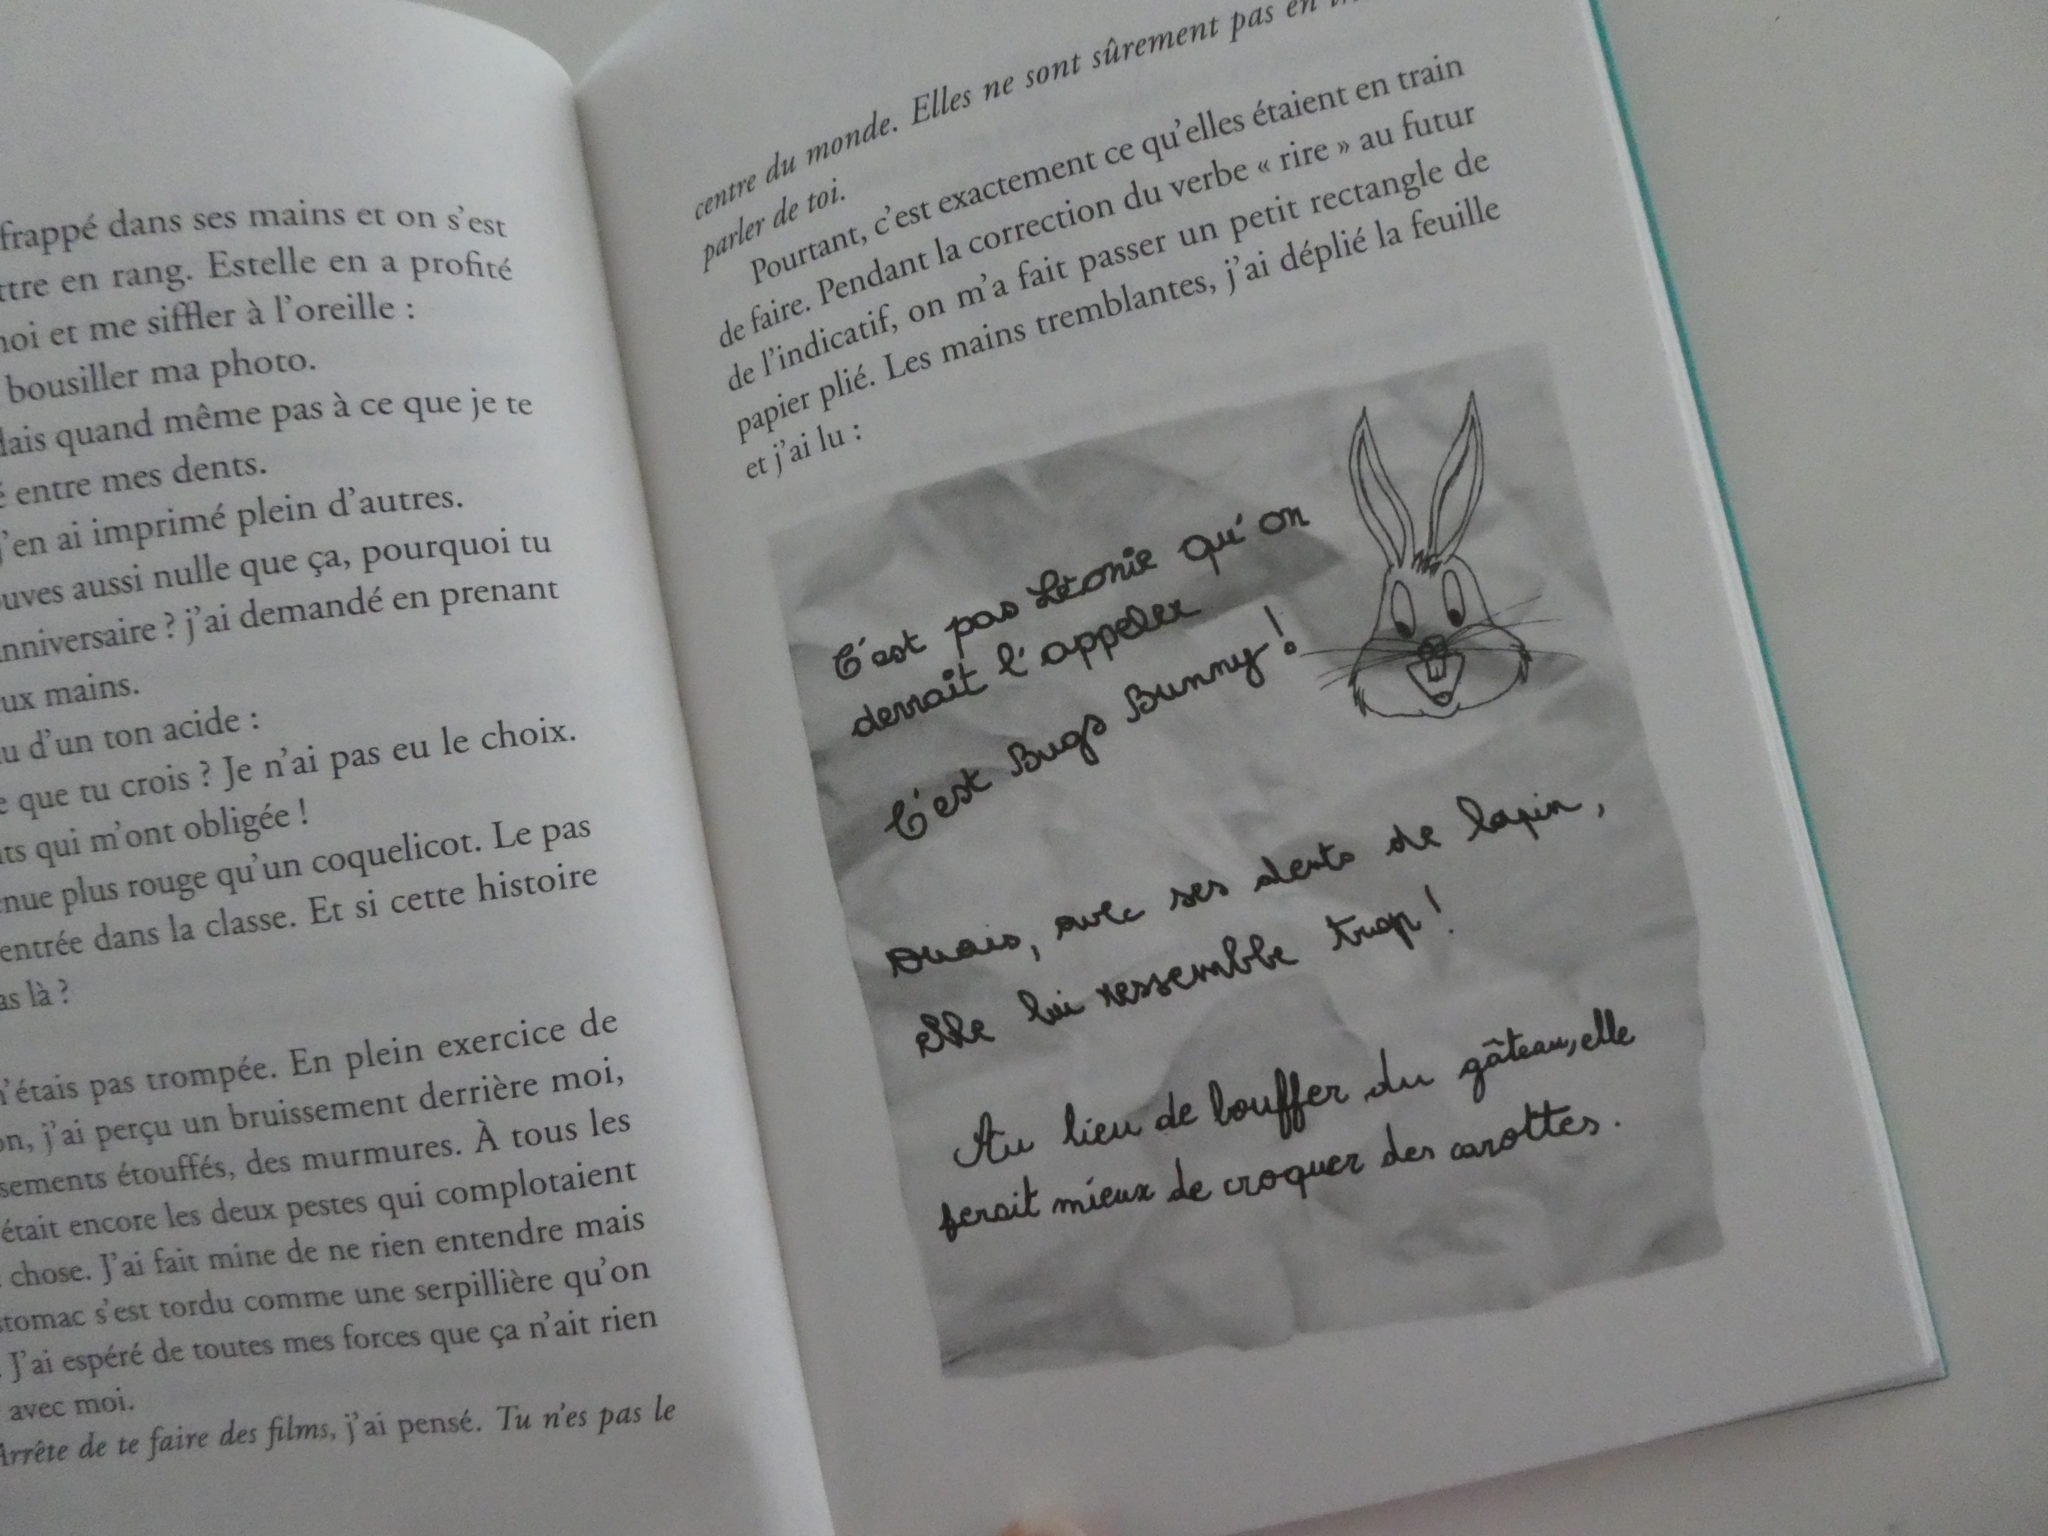 frappé dans ses mains et on s'est
en rang. Estelle en a profité
et me siffler à l'oreille :
bousiller ma photo.
quand même pas à ce que je te
entre mes dents.
j'en ai imprimé plein d'autres.
aussi nulle que ça, pourquoi tu
anniversaire ? j'ai demandé en prenant
mains.
d'un ton acide :
que tu crois ? Je n'ai pas eu le choix.
qui m'ont obligée !
plus rouge qu'un coquelicot. Le pas
entrée dans la classe. Et si cette histoire
là ?
n'étais pas trompée. En plein exercice de
j'ai perçu un bruissement derrière moi,
étouffés, des murmures. À tous les
était encore les deux pestes qui complotaient
chose. J'ai fait mine de ne rien entendre mais
s'est tordu comme une serpillière qu'on
J'ai espéré de toutes mes forces que ça n'ait rien
avec moi.
Arrête de te faire des films, j'ai pensé. Tu n'es pas le
centre du monde. Elles ne sont sûrement pas en
parler de toi.
Pourtant, c'est exactement ce qu'elles étaient en train
de faire. Pendant la correction du verbe « rire » au futur
de l'indicatif, on m'a fait passer un petit rectangle de
papier plié. Les mains tremblantes, j'ai déplié la feuille
et j'ai lu :
C'est pas Léonie qu'on
devrait l'appeler
C'est Bugs Bunny !
Ouais, avec ses dents de lapin,
elle lui ressemble trop !
Au lieu de bouffer du gâteau, elle
ferait mieux de croquer des carottes.